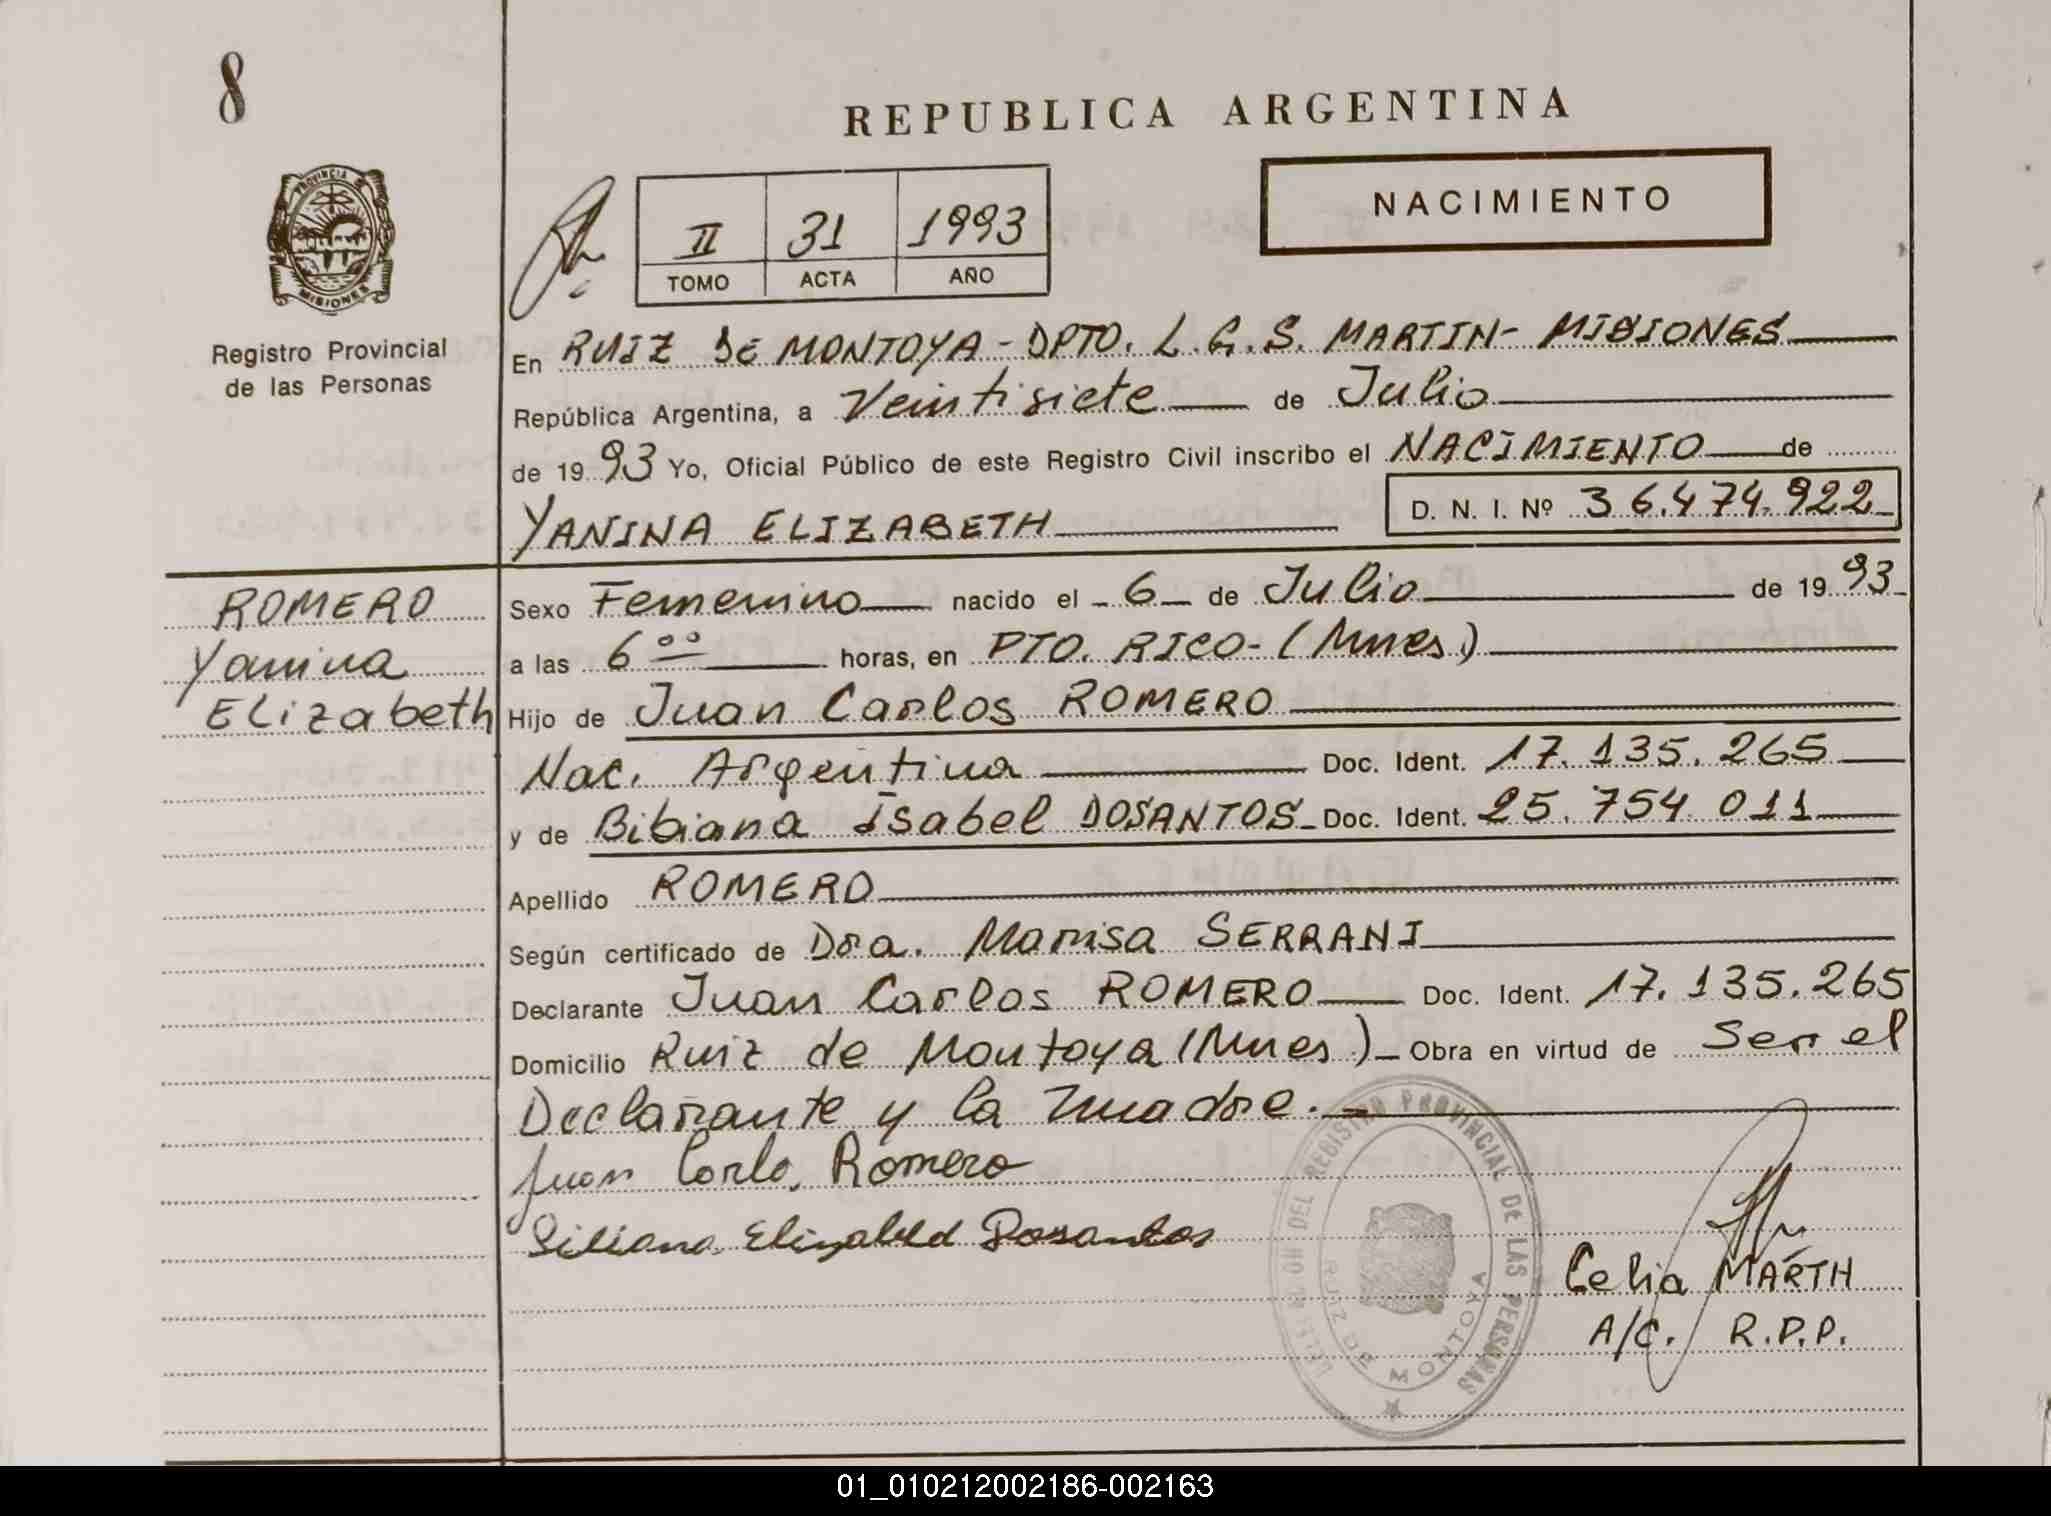 8
REPUBLICA ARGENTINA
NACIMIENTO
II 31 1993
TOMO ACTA AÑO
PROVINCIA DE
MISIONES
Registro Provincial
de las Personas
En RUIZ DE MONTOYA - DPTO. L.G.S. MARTIN - MISIONES
República Argentina, a Veintisiete de Julio
de 1993 Yo, Oficial Público de este Registro Civil inscribo el NACIMIENTO de
YANINA ELIZABETH D. N. I. Nº 36.474.922
ROMERO
Yanina
Elizabeth
Sexo Femenino nacido el 6 de Julio de 1993
a las 6 00 horas, en PTO. RICO - (Mnes.)
Hijo de Juan Carlos ROMERO
Nac. Argentina Doc. Ident. 17.135.265
y de Bibiana Isabel DOSANTOS Doc. Ident. 25.754.011
Apellido ROMERO
Según certificado de Dra. Marisa SERRANI
Declarante Juan Carlos ROMERO Doc. Ident. 17.135.265
Domicilio Ruiz de Montoya (Mnes.) Obra en virtud de Ser el
Declarante y la madre.-
Juan Carlo, Romero
Dosantos
DEL REGISTRO PROVINCIAL DE LAS PERSONAS
RUIZ DE MONTOYA
Celia MARTH
A/C. R.P.P.
01_010212002186-002163